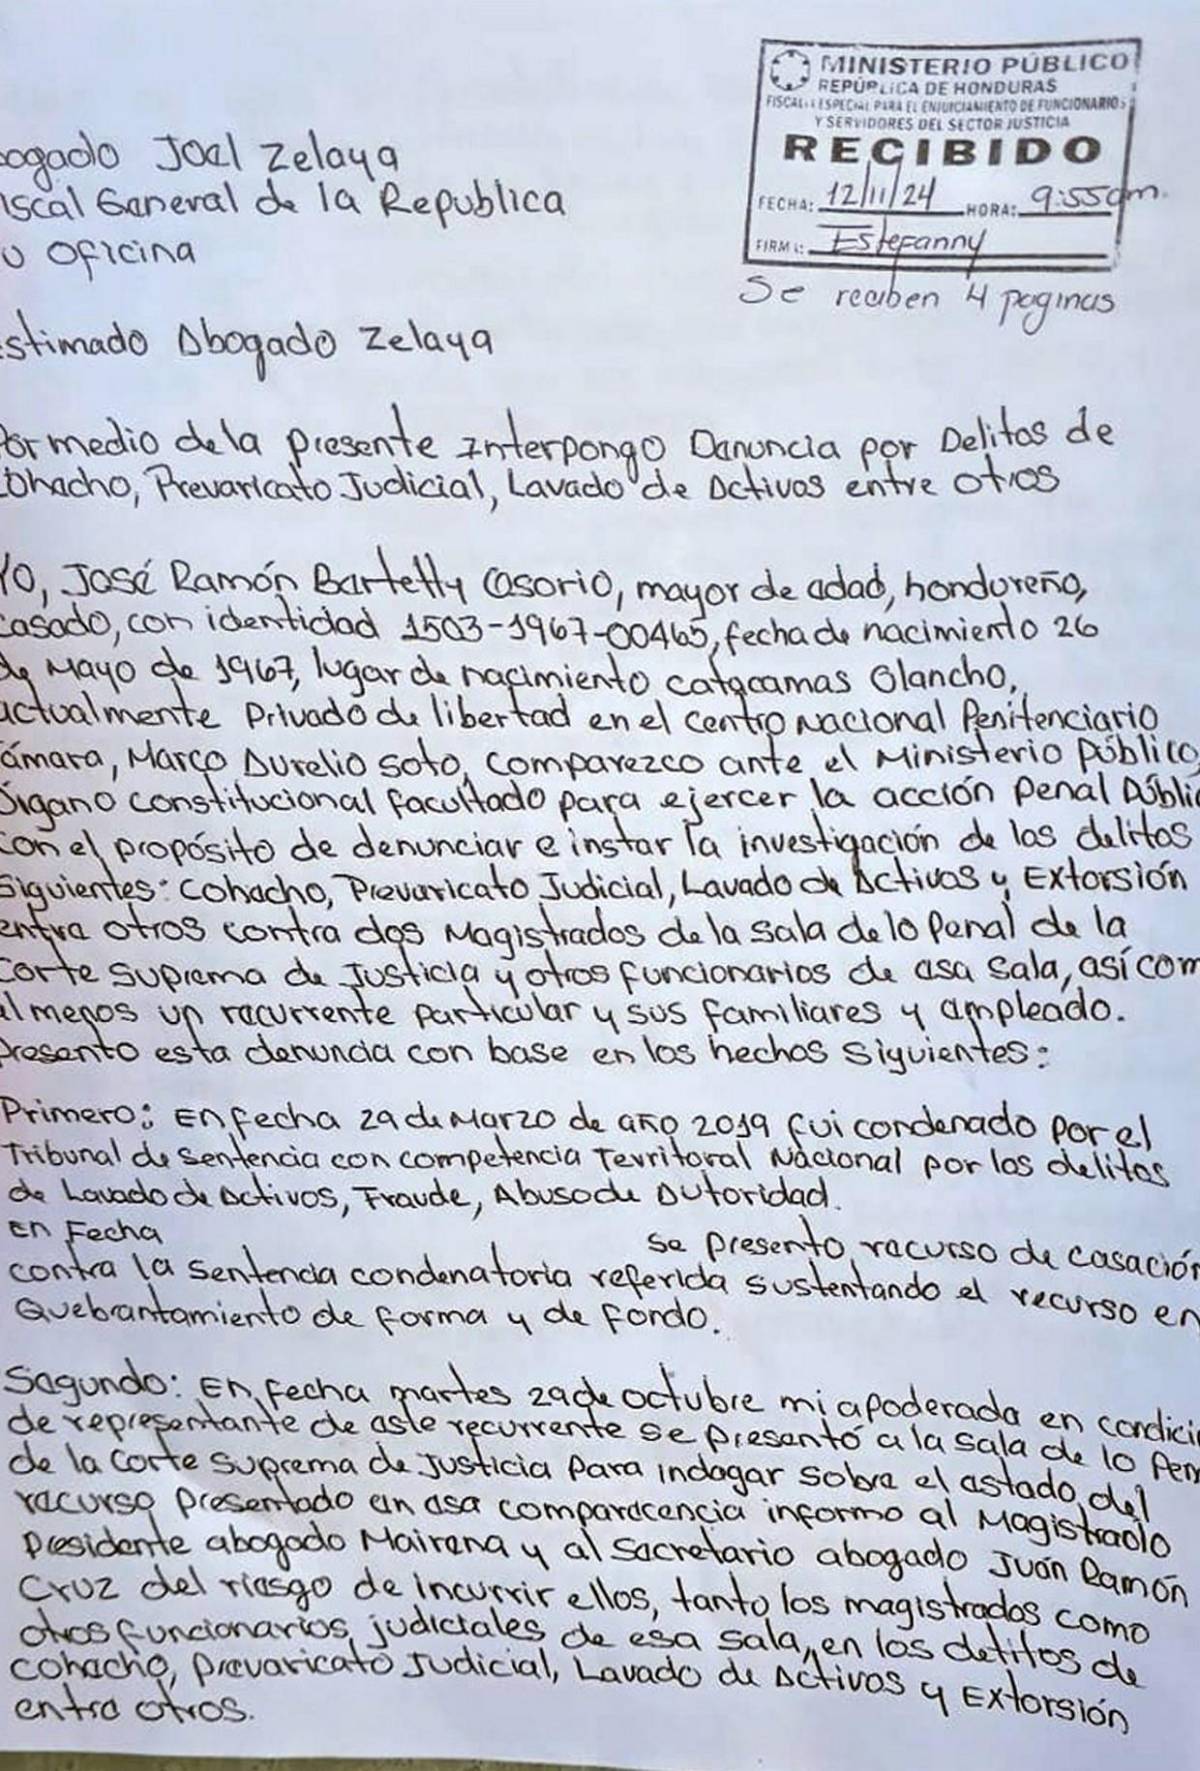 MINISTERIO PÚBLICO
REPÚBLICA DE HONDURAS
FISCALIA ESPECIAL PARA EL ENJUICIAMIENTO DE FUNCIONARIOS
Y SERVIDORES DEL SECTOR JUSTICIA
RECIBIDO
FECHA: 12/11/24 HORA: 9:55am.
FIRMA: Estefanny
Se reciben 4 paginas
bogado Joel Zelaya
iscal General de la Republica
u Oficina
Estimado Abogado Zelaya
Por medio de la presente Interpongo Denuncia por Delitos de
Cohecho, Prevaricato Judicial, Lavado de Activos entre otros
Yo, José Ramón Bartetty Osorio, mayor de edad, hondureño,
casado, con identidad 1503-1967-00465, fecha de nacimiento 26
de Mayo de 1967, lugar de nacimiento catacamas Olancho,
actualmente Privado de libertad en el Centro Nacional Penitenciario
Támara, Marco Aurelio Soto, comparezco ante el Ministerio Público,
Órgano constitucional facultado para ejercer la acción Penal Públic
con el propósito de denunciar e instar la investigación de los delitos
Siguientes: Cohecho, Prevaricato Judicial, Lavado de Activos y Extorsión
entre otros contra dos Magistrados de la Sala de lo Penal de la
Corte Suprema de Justicia y otros funcionarios de esa Sala, así com
al menos un recurrente particular y sus familiares y empleado.
Presento esta denuncia con base en los hechos Siguientes:
Primero: En fecha 29 de Marzo de año 2019 fui condenado por el
Tribunal de Sentencia con competencia Territoral Nacional por los delitos
de Lavado de Activos, Fraude, Abuso de Autoridad.
En Fecha se presento recurso de casación
contra la sentencia condenatoria referida sustentando el recurso en
Quebrantamiento de forma y de fondo.
Segundo: En fecha martes 29 de octubre mi apoderada en condici
de representante de este recurrente se presentó a la Sala de lo Pen
de la Corte Suprema de Justicia para indagar sobre el estado del
recurso presentado en esa comparecencia informo al Magistrado
Presidente abogado Mairena y al Secretario abogado Juán Ramón
Cruz del riesgo de incurrir ellos, tanto los magistrados como
otros funcionarios judiciales de esa sala, en los detitos de
cohecho, Prevaricato Judicial, Lavado de Activos y Extorsión
entre otros.